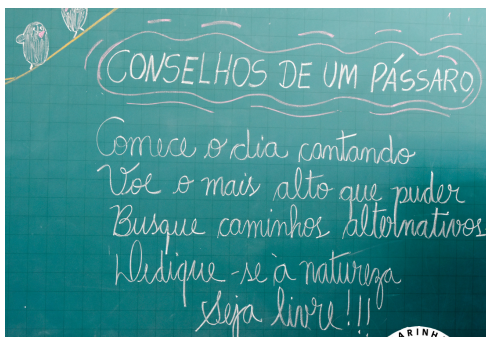 CONSELHOS DE UM PÁSSARO
Comece o dia cantando
Voe o mais alto que puder
Busque caminhos alternativos
Dedique-se à natureza
Seja livre!!!
ARINH